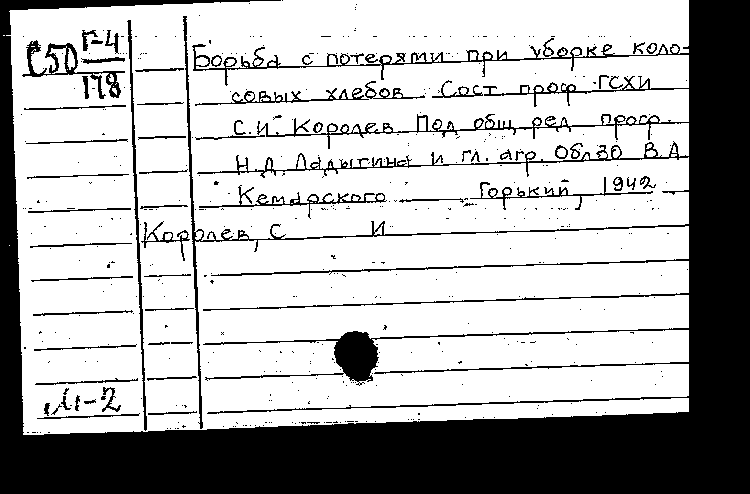 С50 Г-4
178
Борьба с потерями при уборке коло-
совых хлебов. Сост. проф. ГСХИ
С.И. Королев. Под общ. ред. проф.
Н.Д. Ладыгина и гл. агр. ОблЗО В.А.
Кемарского Горький, 1942.
Королев, С И
М-2